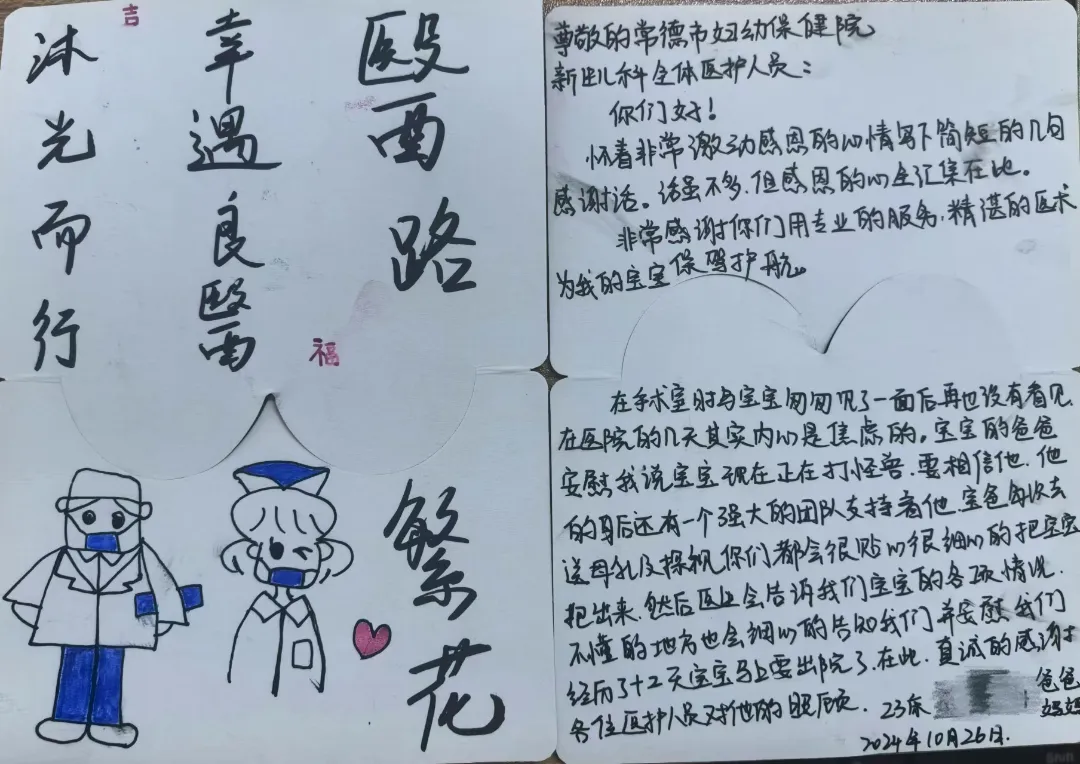 醫路繁花
幸遇良醫
沐光而行
吉
福
尊敬的常德市妇幼保健院
新生儿科全体医护人员：
你们好！
怀着非常激动感恩的心情写下简短的几句
感谢话。话虽不多.但感恩的心全汇集在此。
非常感谢你们用专业的服务,精湛的医术
为我的宝宝保驾护航。
在手术室时与宝宝匆匆见了一面后再也没有看见
在医院的几天其实内心是焦虑的。宝宝的爸爸
安慰我说宝宝现在正在打怪兽.要相信他.他
的身后还有一个强大的团队支持着他.宝爸每次去
送母乳及探视你们都会很贴心很细心的把宝宝
抱出来.然后医生会告诉我们宝宝的各项情况.
不懂的地方也会细心的告知我们并安慰我们
经历了十二天宝宝马上要出院了.在此.真诚的感谢
各位医护人员对他的照顾. 23床 爸爸
妈妈
2024年10月26日.